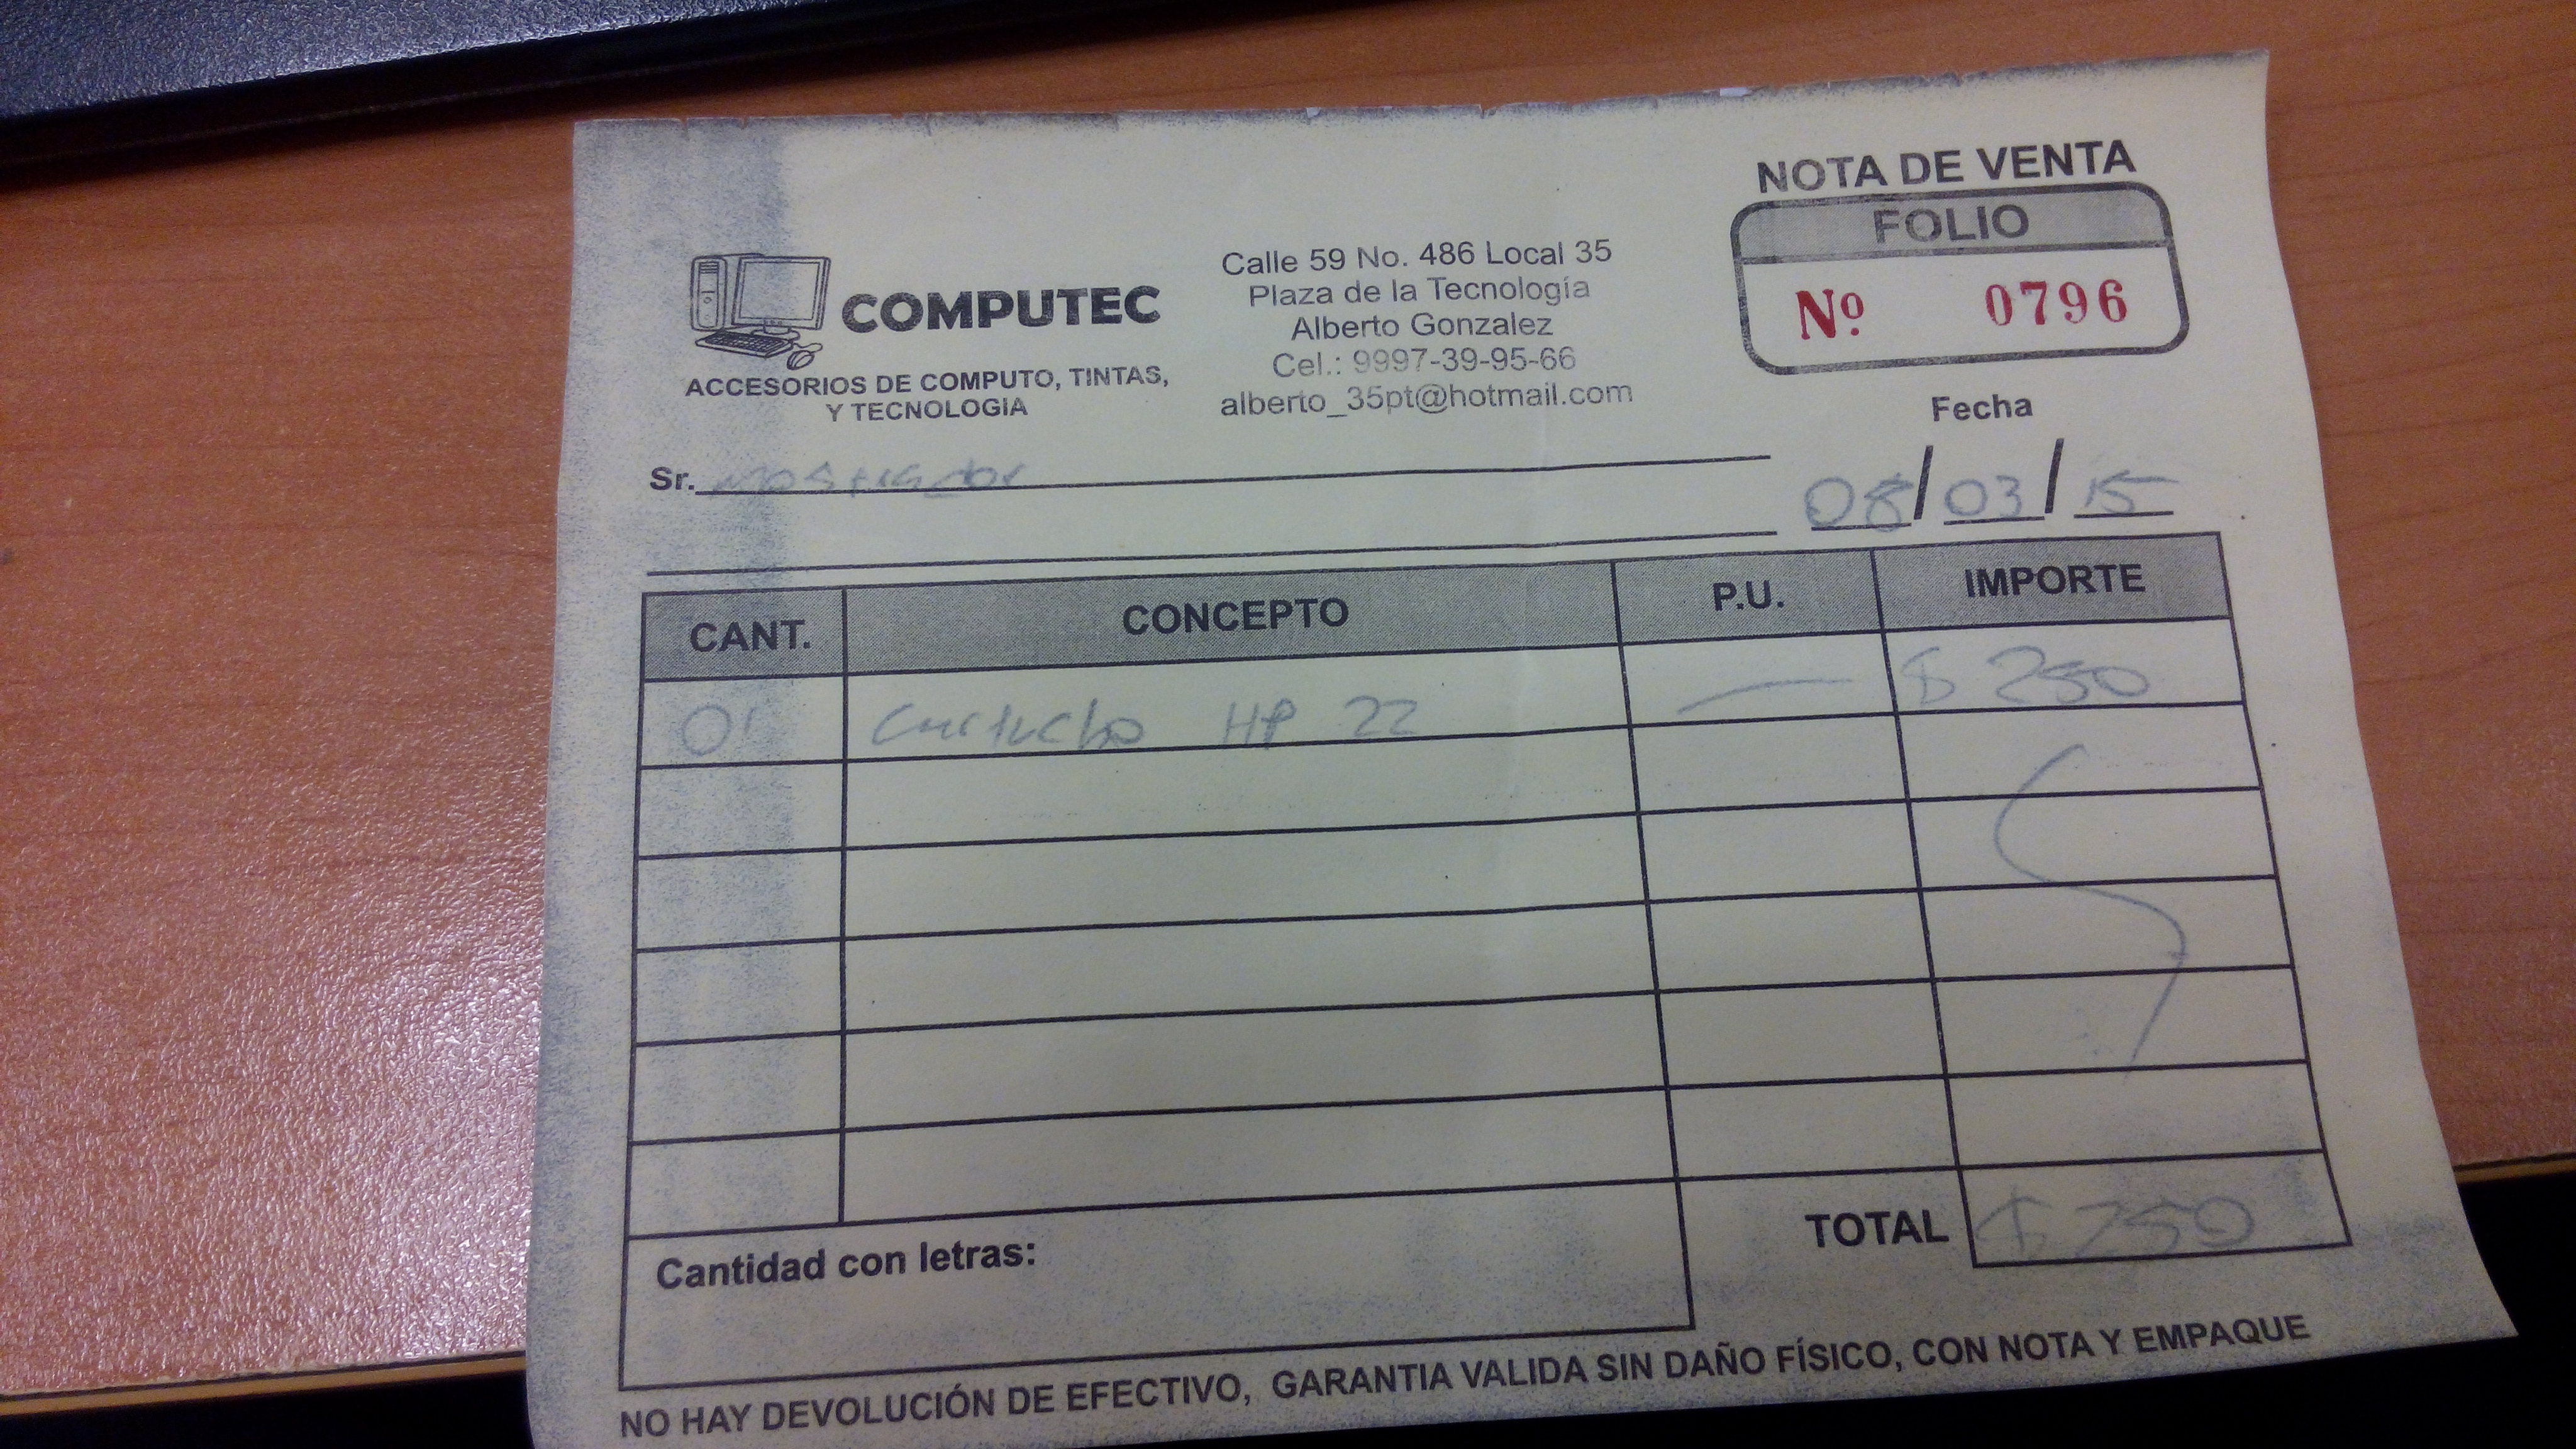 NOTA DE VENTA
FOLIO
Nº 0796
COMPUTEC
ACCESORIOS DE COMPUTO, TINTAS,
Y TECNOLOGIA
Calle 59 No. 486 Local 35
Plaza de la Tecnología
Alberto Gonzalez
Cel.: 9997-39-95-66
alberto_35pt@hotmail.com
Fecha
08/03/15
Sr. mostrador
CANT. CONCEPTO P.U. IMPORTE
01 Cartucho HP 22 — $ 250
TOTAL $ 250
Cantidad con letras:
NO HAY DEVOLUCIÓN DE EFECTIVO, GARANTIA VALIDA SIN DAÑO FÍSICO, CON NOTA Y EMPAQUE